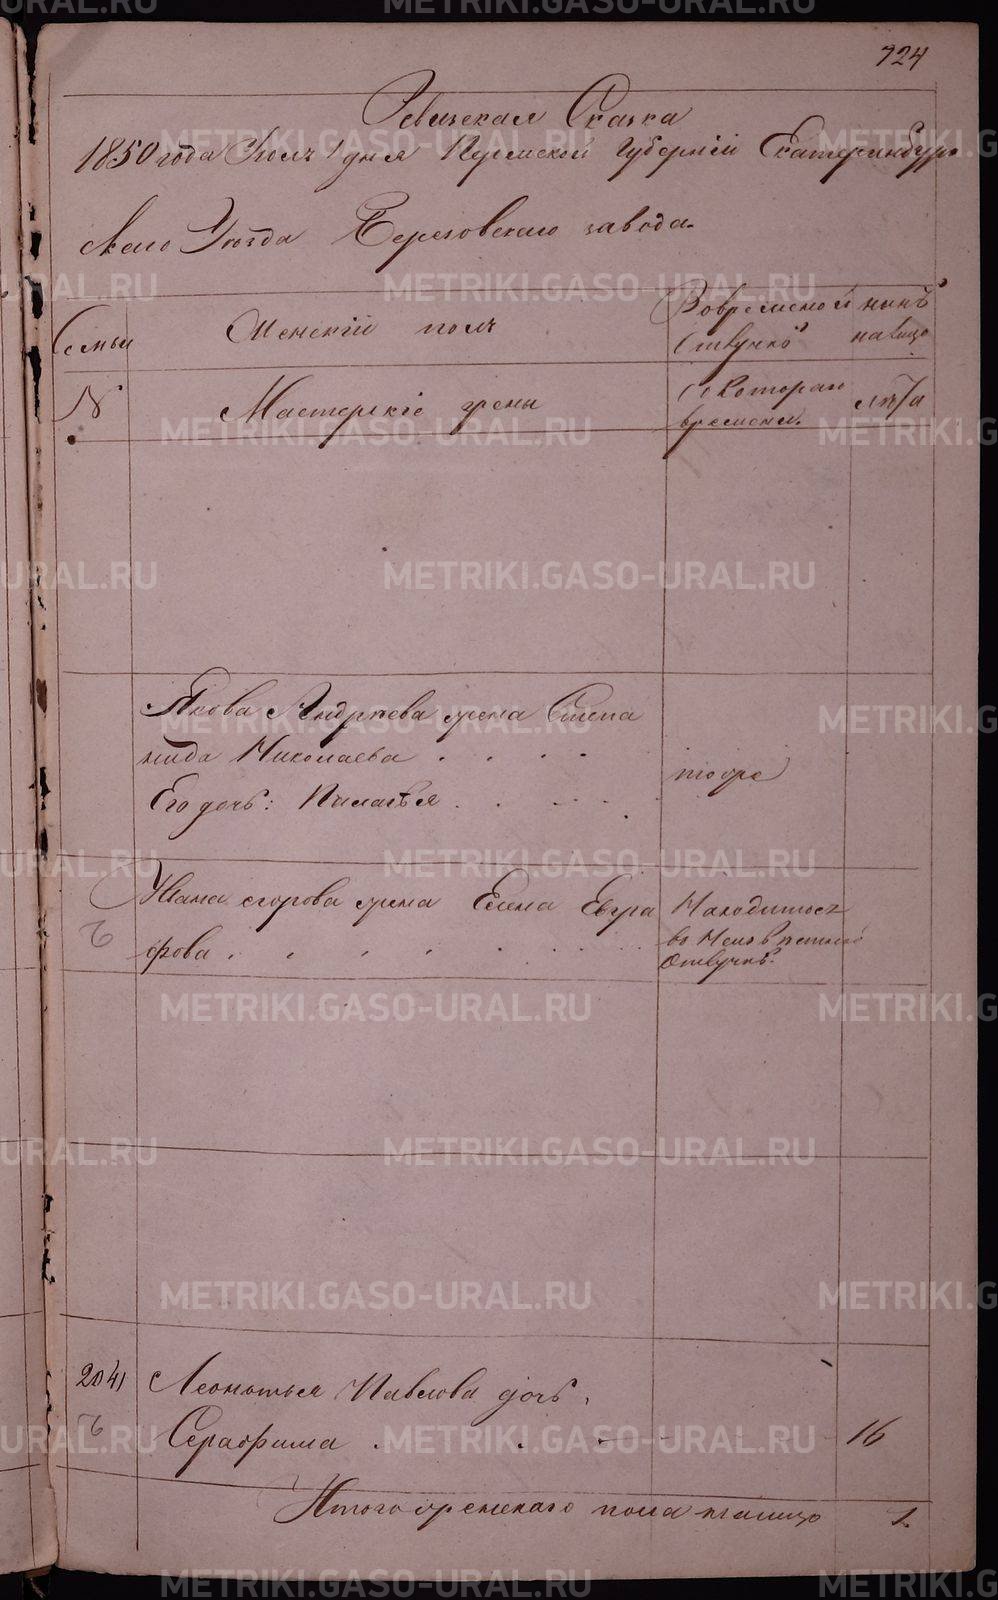 724
Ревизская Сказка
1850 года Июля 1 дня Пермской Губернии Екатеринбур
скаго Уезда Березовскаго завода.
Семьи
Женский полъ
Вовременной
Отлучке
ныне
налицо
№
Мастерские жены
Съ Котораго
времени.
лета
Якова Андреева жена Степа
нида Николаева
Его дочь: Пилагея
тоже
Ивана егорова жена Елена Евгра
фова
Находится
Отлучке.
2041
Леонтья Павлова дочь
Серафима
16
Итого женскаго пола налицо
1.
METRIKI.GASO-URAL.RU